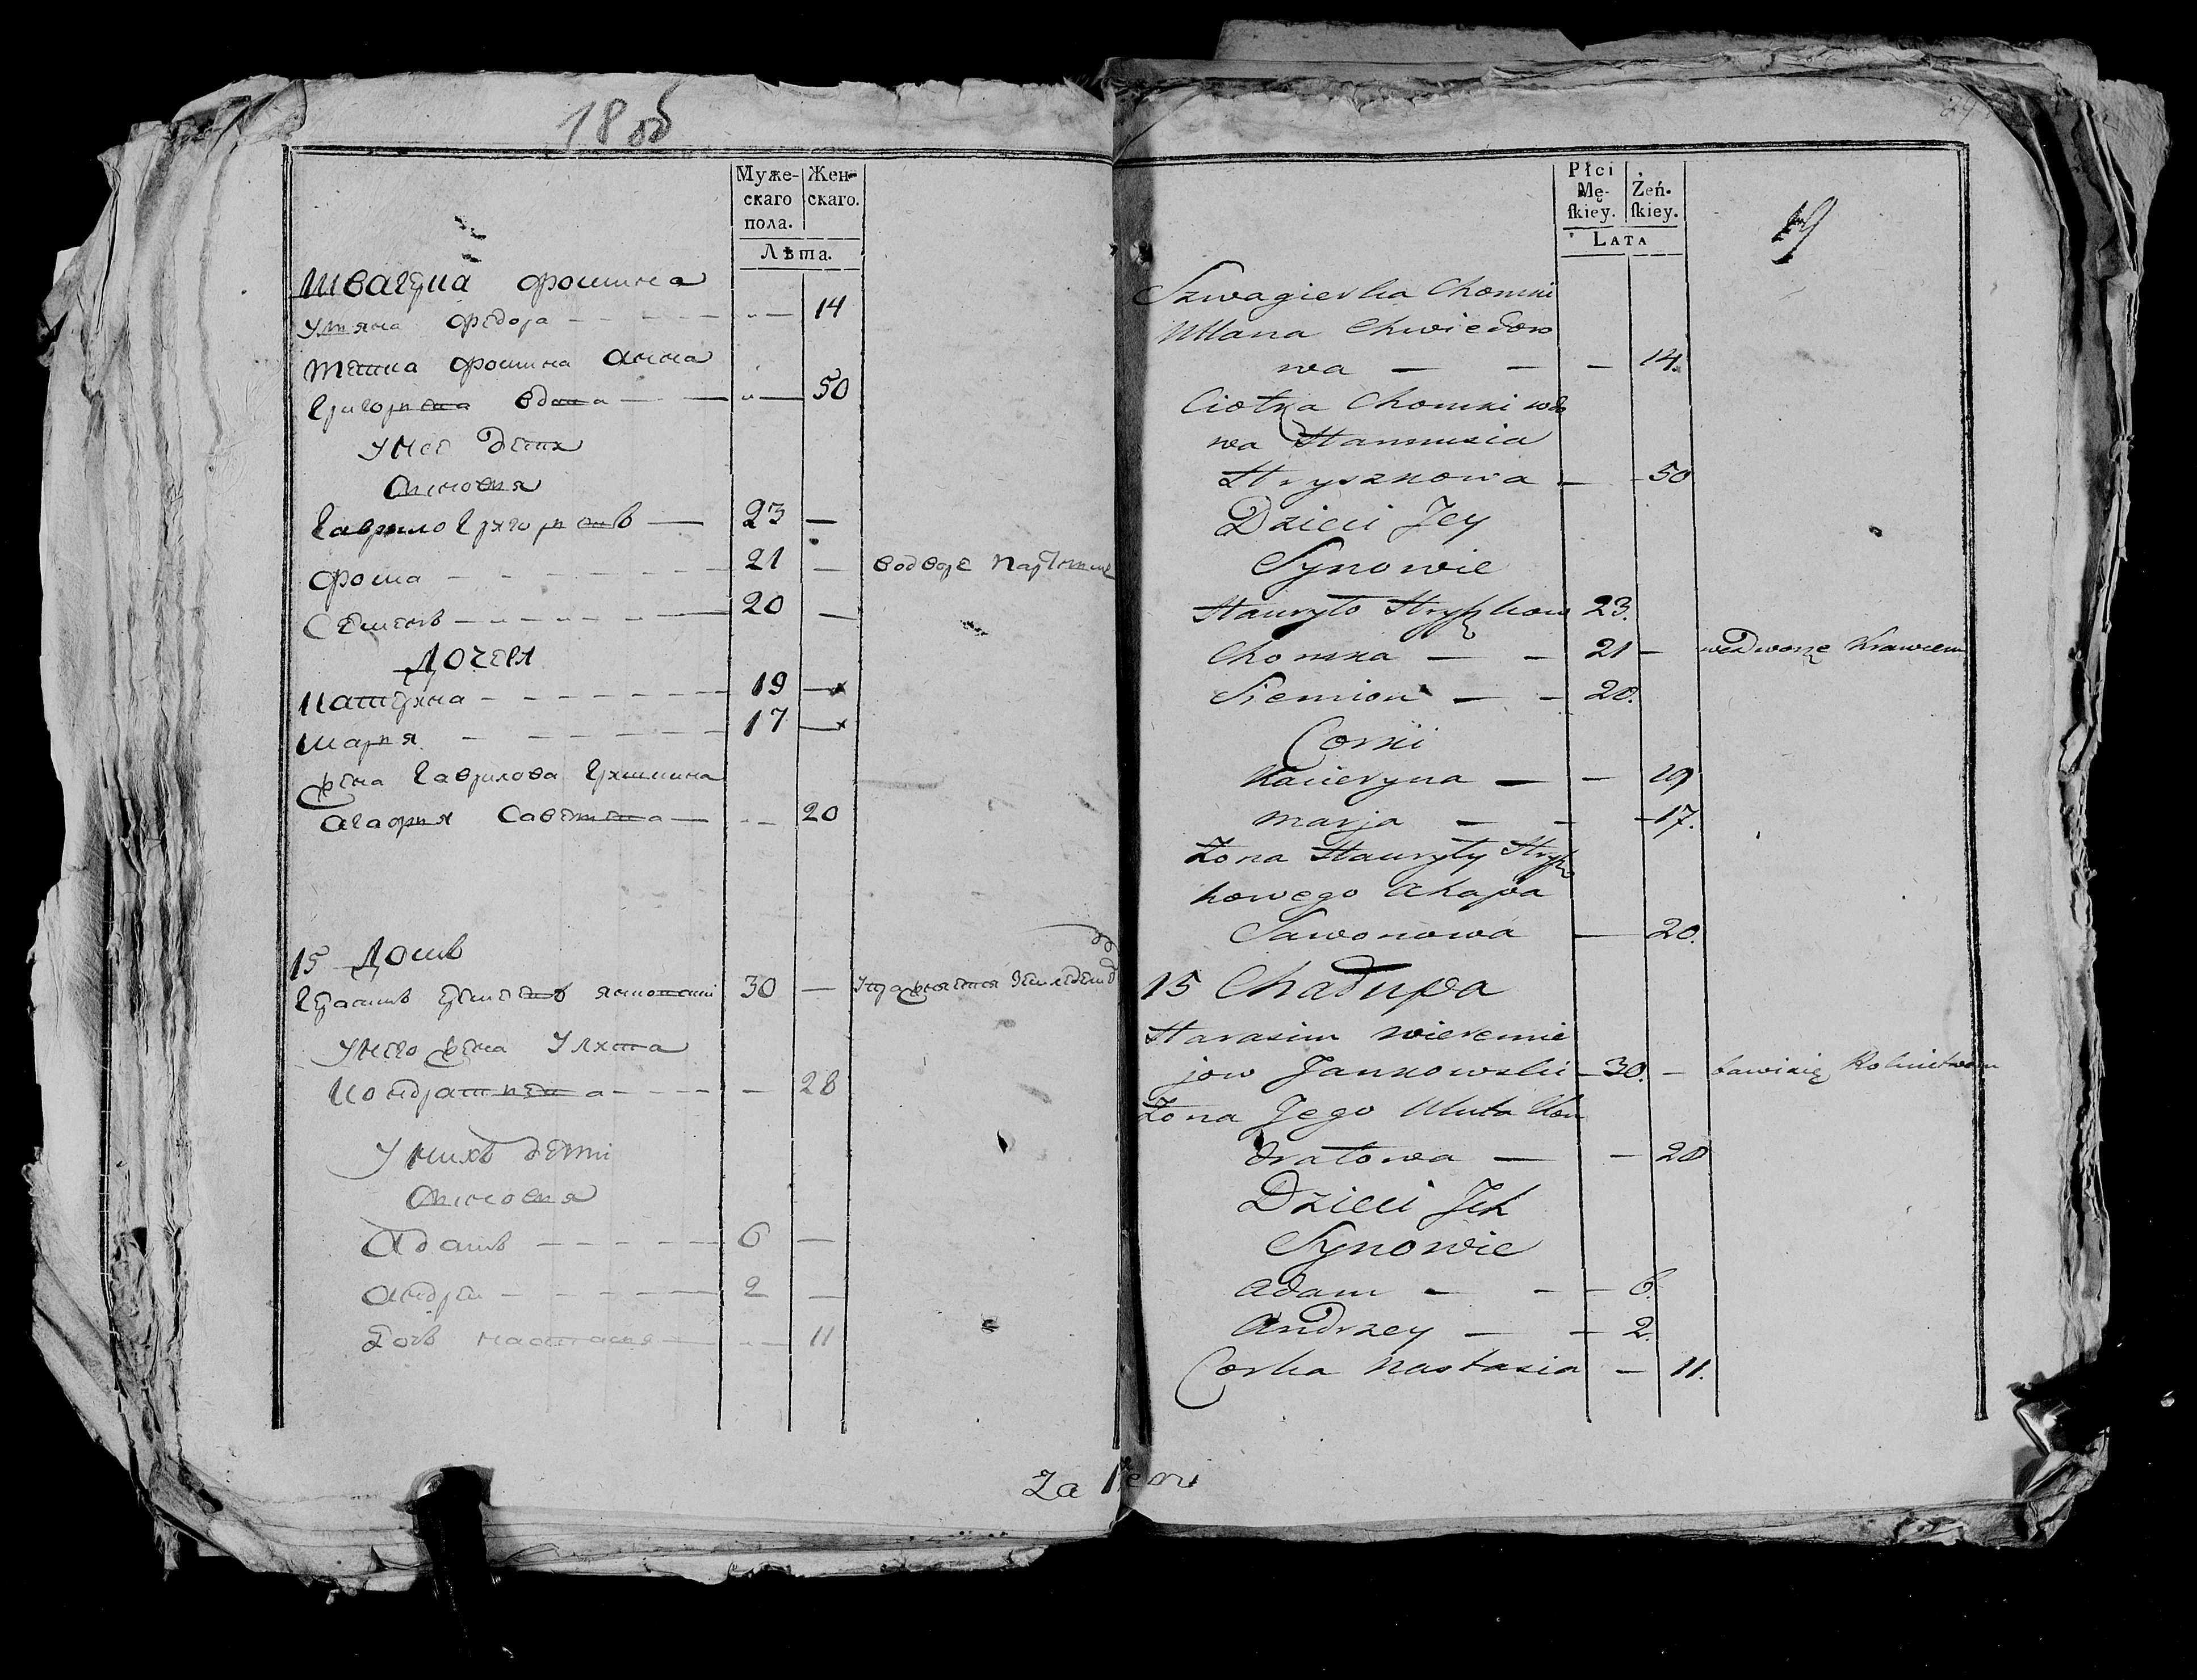 18 об
Муже-
скаго
пола.
Жен-
скаго.
Лѣта.
Швагерка Фомина
Уляна Федора — — 14
Тетка Фомина Анна
Григорева вдова — — 50
У нее дети
Синовя
Гаврило Григориевъ — 23 —
Фома — 21 — во дворе
Семенъ — 20 —
Дочери
Катерина — 19 —
Мария — 17 —
жена Гаврилова
Агафия — 20
15 Домъ
30 —
У него жена Улита
Кондратиева — 28
У нихъ дети
Синовя
Адамъ — 6 —
Андрей — 2 —
Дочь Настасия — 11
Za
Płci
Mę-
ſkiey.
Żeń-
ſkiey.
LATA
19
Szwagierka Chomki
Ullana Chwiedoro
wa — — — 14.
Ciotka Chomki wdo
wa Hannusia
Hryszkowa — 50
Dzieci Jey
Synowie
Hauryło Hryszkow 23.
Chomka — — 21 — we dworze Krawcem
Siemion — — 20.
Corki
Kacieryna — — 19
Marja — — 17.
Żona Hauryły Hrysz
kowego Ahapa
Sawonowa — 20.
15 Chałupa
Harasim Wieremie
jow Jankowski — 30. — bawi się Rolnictwem
Żona Jego Uluta Kon
dratowa — — 28
Dzieci Ich
Synowie
Adam — — 6.
Andrzey — — 2.
Corka Nastazia — 11.